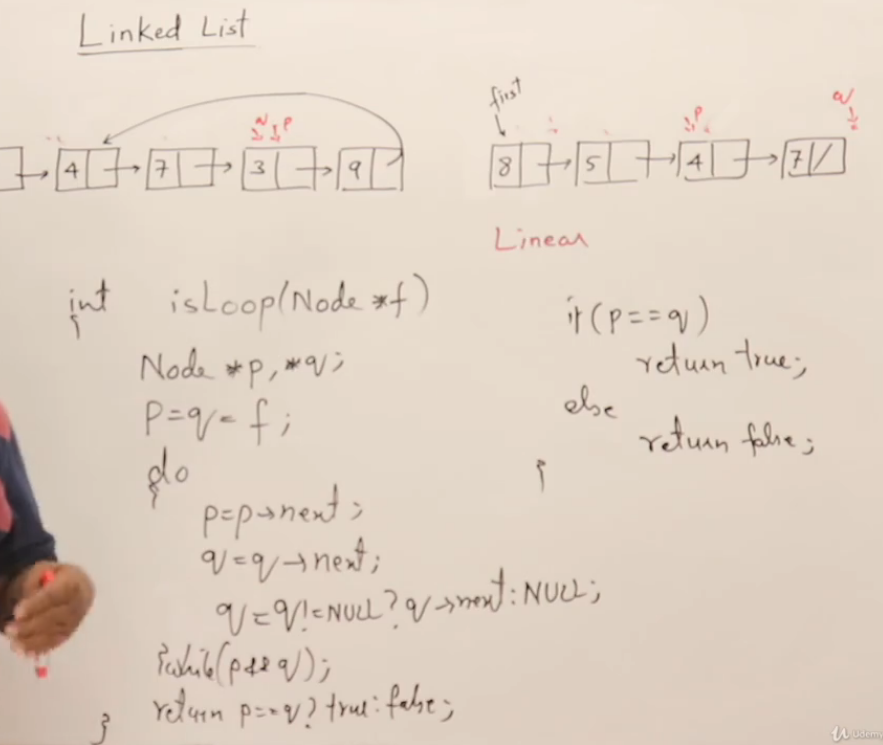 Linked List
q p
4 7 3 9
first
p q
8 5 4 7 /
Linear
int isLoop(Node *f)
{
Node *p, *q;
p=q=f;
do
{
p=p→next;
q=q→next;
q=q!=NULL?q→next:NULL;
}while(p&&q);
return p==q?true:false;
}
if(p==q)
return true;
else
return false;
}
Udemy